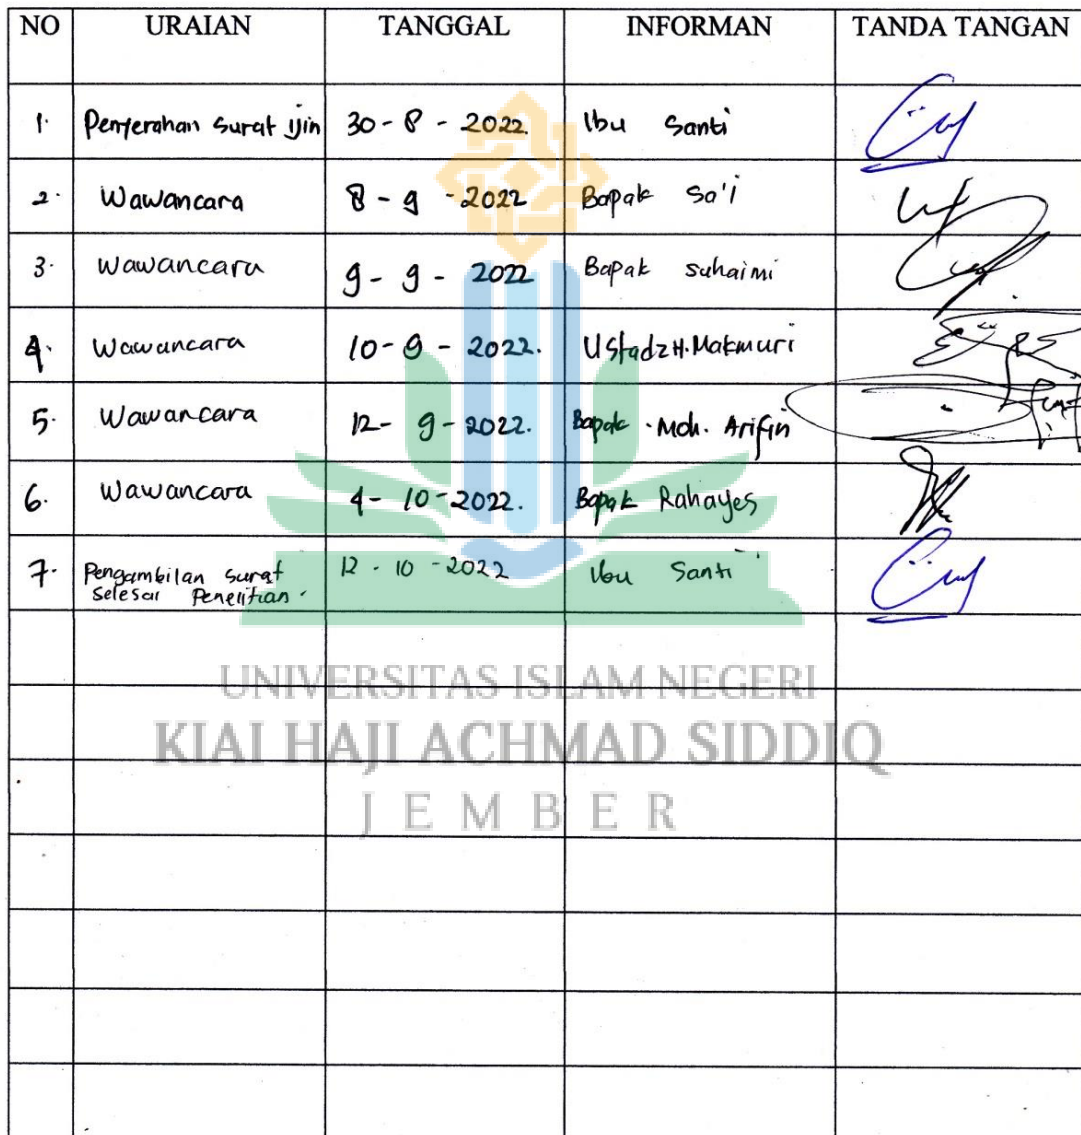 NO URAIAN TANGGAL INFORMAN TANDA TANGAN
1. Penyerahan surat ijin 30 - 8 - 2022. Ibu Santi
2. Wawancara 8 - 9 - 2022 Bapak Sa'i
3. Wawancara 9 - 9 - 2022 Bapak suhaimi
4. Wawancara 10 - 9 - 2022. Ustadz H. Makmuri
5. Wawancara 12 - 9 - 2022. Bapak . Moh. Arifin
6. Wawancara 4 - 10 - 2022. Bapak Rahayes
7. Pengambilan surat 12 - 10 - 2022 Ibu Santi
selesai Penelitian.
UNIVERSITAS ISLAM NEGERI
KIAI HAJI ACHMAD SIDDIQ
JEMBER